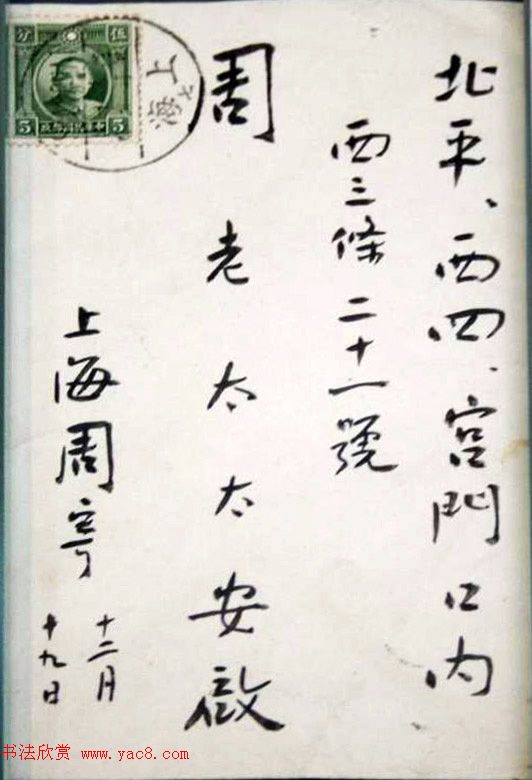 北平、西四、宫門口内
西三條二十一號
周老太太安啟
上海周寄
十二月
十九日
伍分
5 5
上海
书法欣赏 www.yac8.com